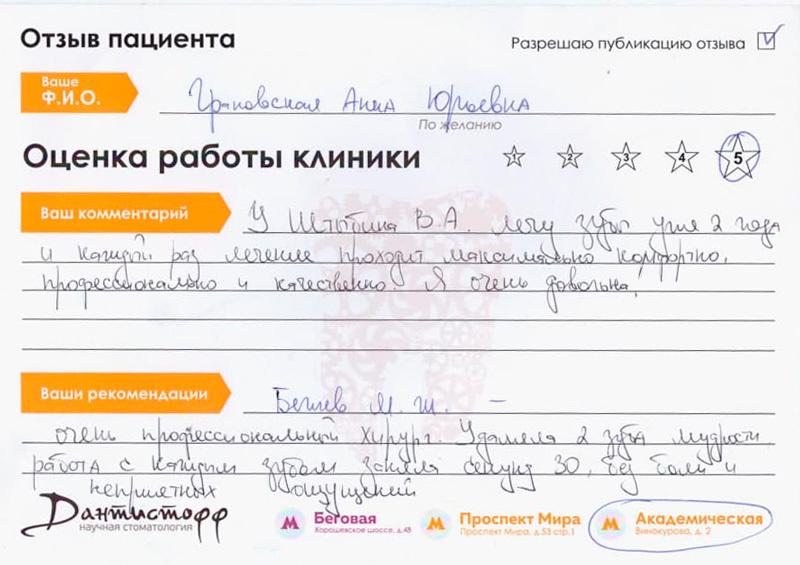 Отзыв пациента
Разрешаю публикацию отзыва
Ваше
Ф.И.О.
Грановская Анна Юрьевна
По желанию
Оценка работы клиники
1 2 3 4 5
Ваш комментарий
У Штыбина В.А. лечу зубы уже 2 года
и каждый раз лечение проходит максимально комфортно,
профессионально и качественно. Я очень довольна,
Ваши рекомендации
М. Ш. –
очень профессиональный хирург. Удаляла 2 зуба мудрости,
работа с каждым зубом заняла секунд 30, без боли и
неприятных ощущений
Дантистофф
научная стоматология
М Беговая
Хорошевское шоссе, д.48
М Проспект Мира
Проспект Мира, д.53 стр.1
М Академическая
Винокурова, д. 2